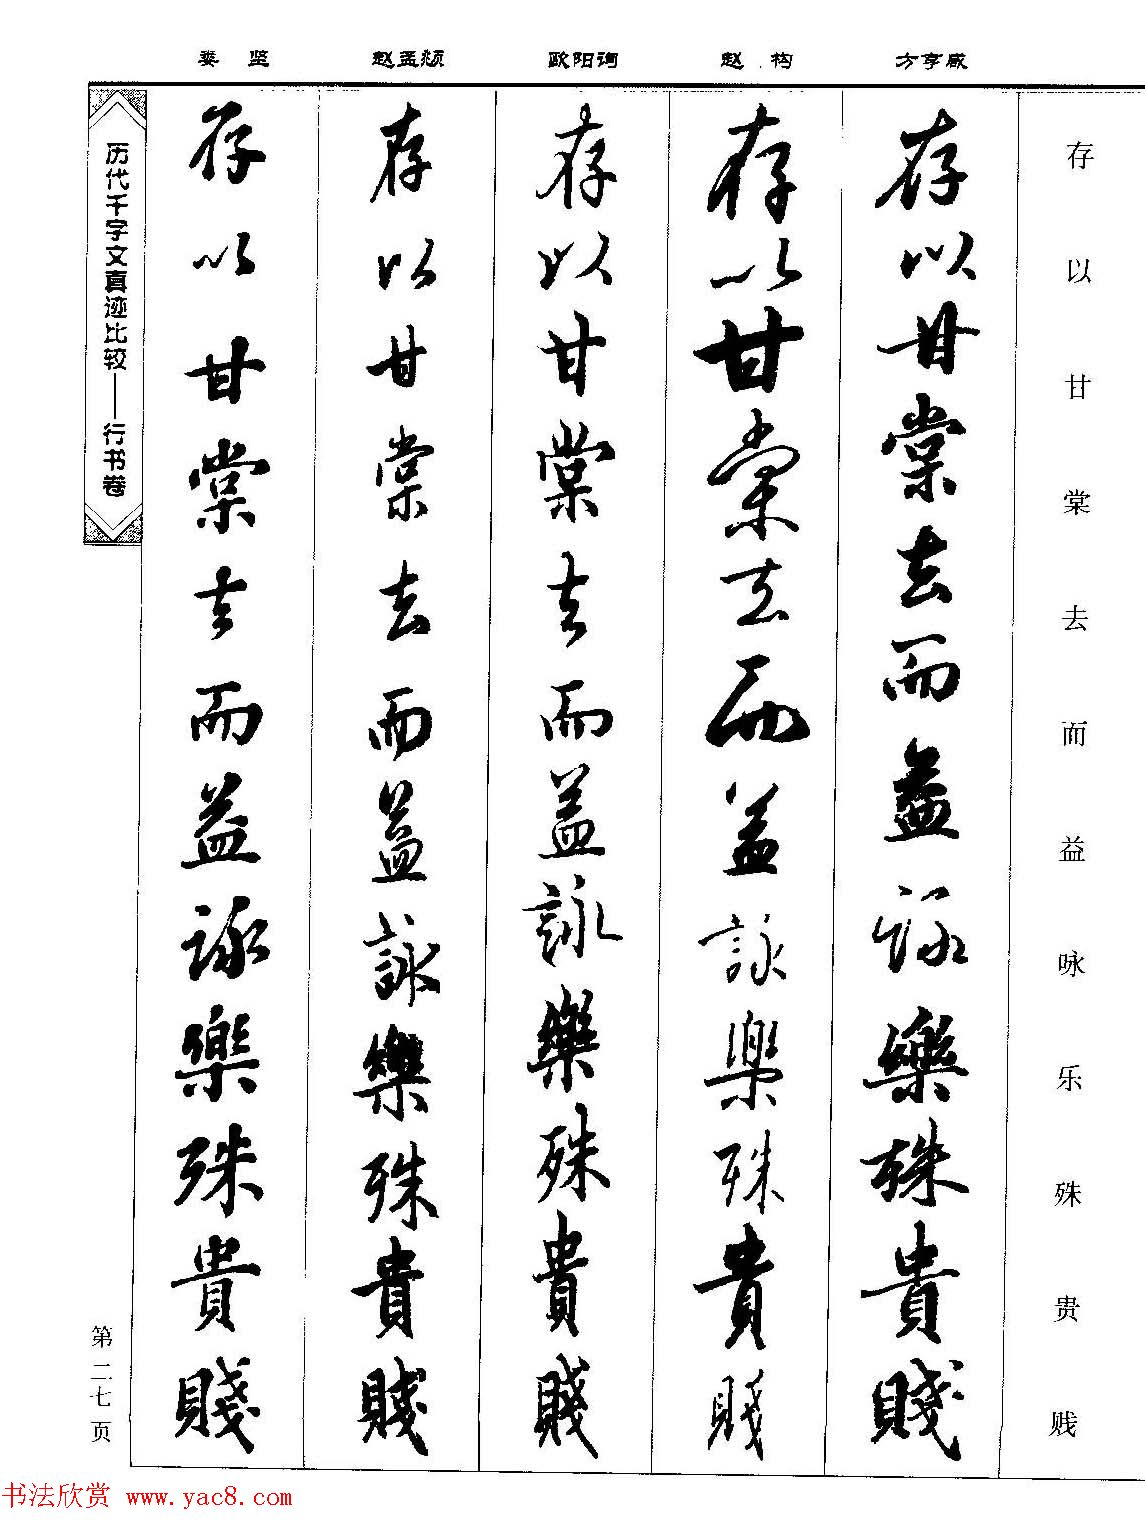 娄坚
赵孟頫
欧阳询
赵构
方亨咸
存以甘棠去而益咏乐殊贵贱
存以甘棠去而益詠樂殊貴賤
存以甘棠去而益詠樂殊貴賤
存以甘棠去而益詠樂殊貴賤
存以甘棠去而益詠樂殊貴賤
存以甘棠去而益詠樂殊貴賤
历代千字文真迹比较——行书卷
第二七页
书法欣赏 www.yac8.com